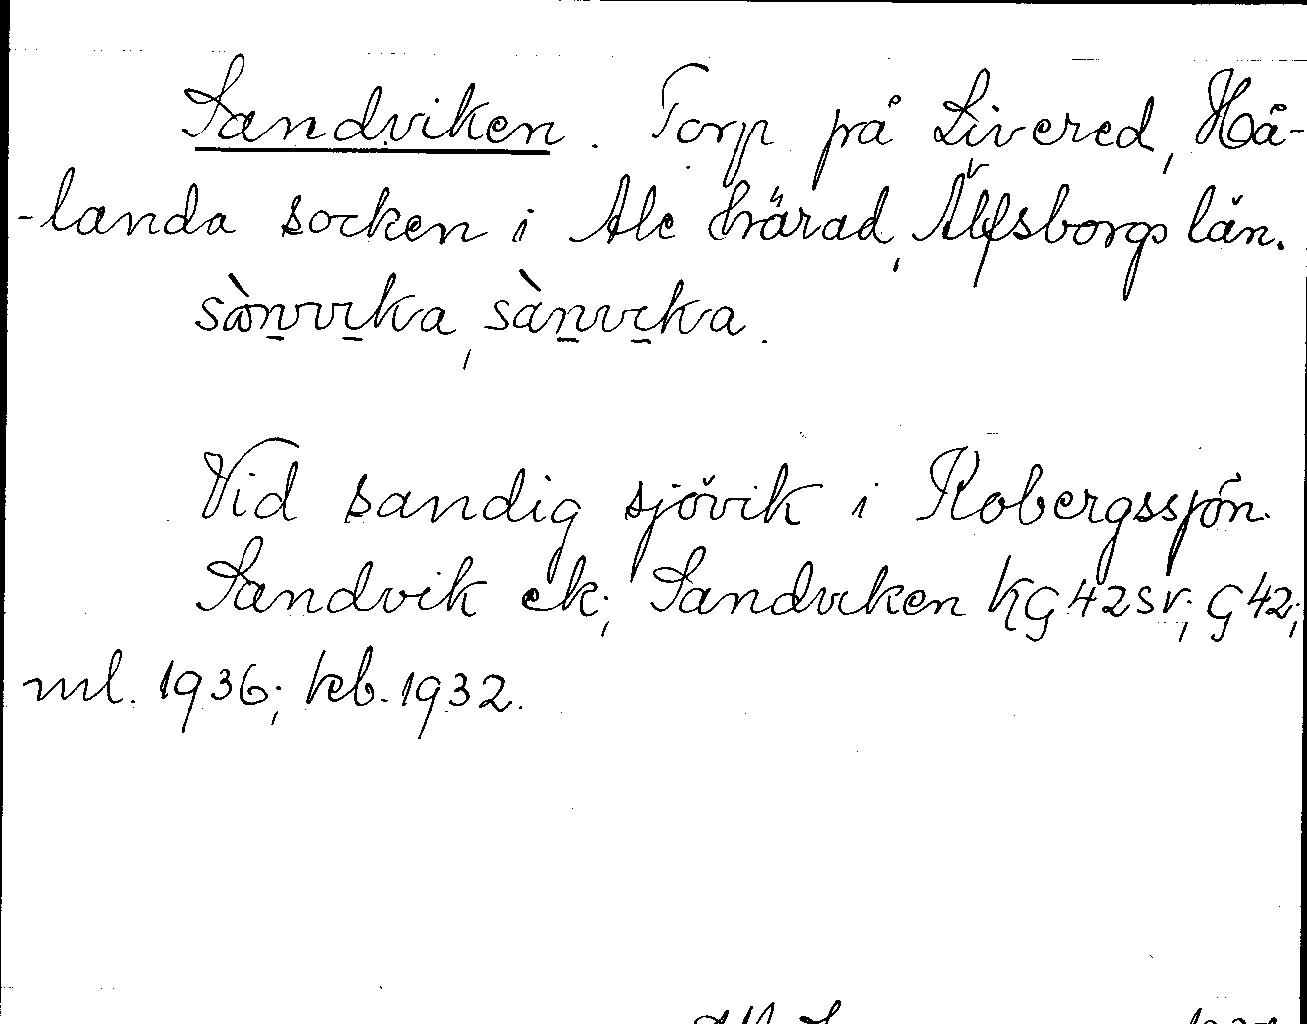 Sandviken. Torp på Livered, Hå-
-landa socken i Ale härad, Älfsborgs län.
sàn̲vi̲ka, sàn̲vi̲ka.
Vid sandig sjövik i Robergssjön.
Sandvik ek; Sandviken KG 42 SV; G 42;
ml. 1936; keb. 1932.